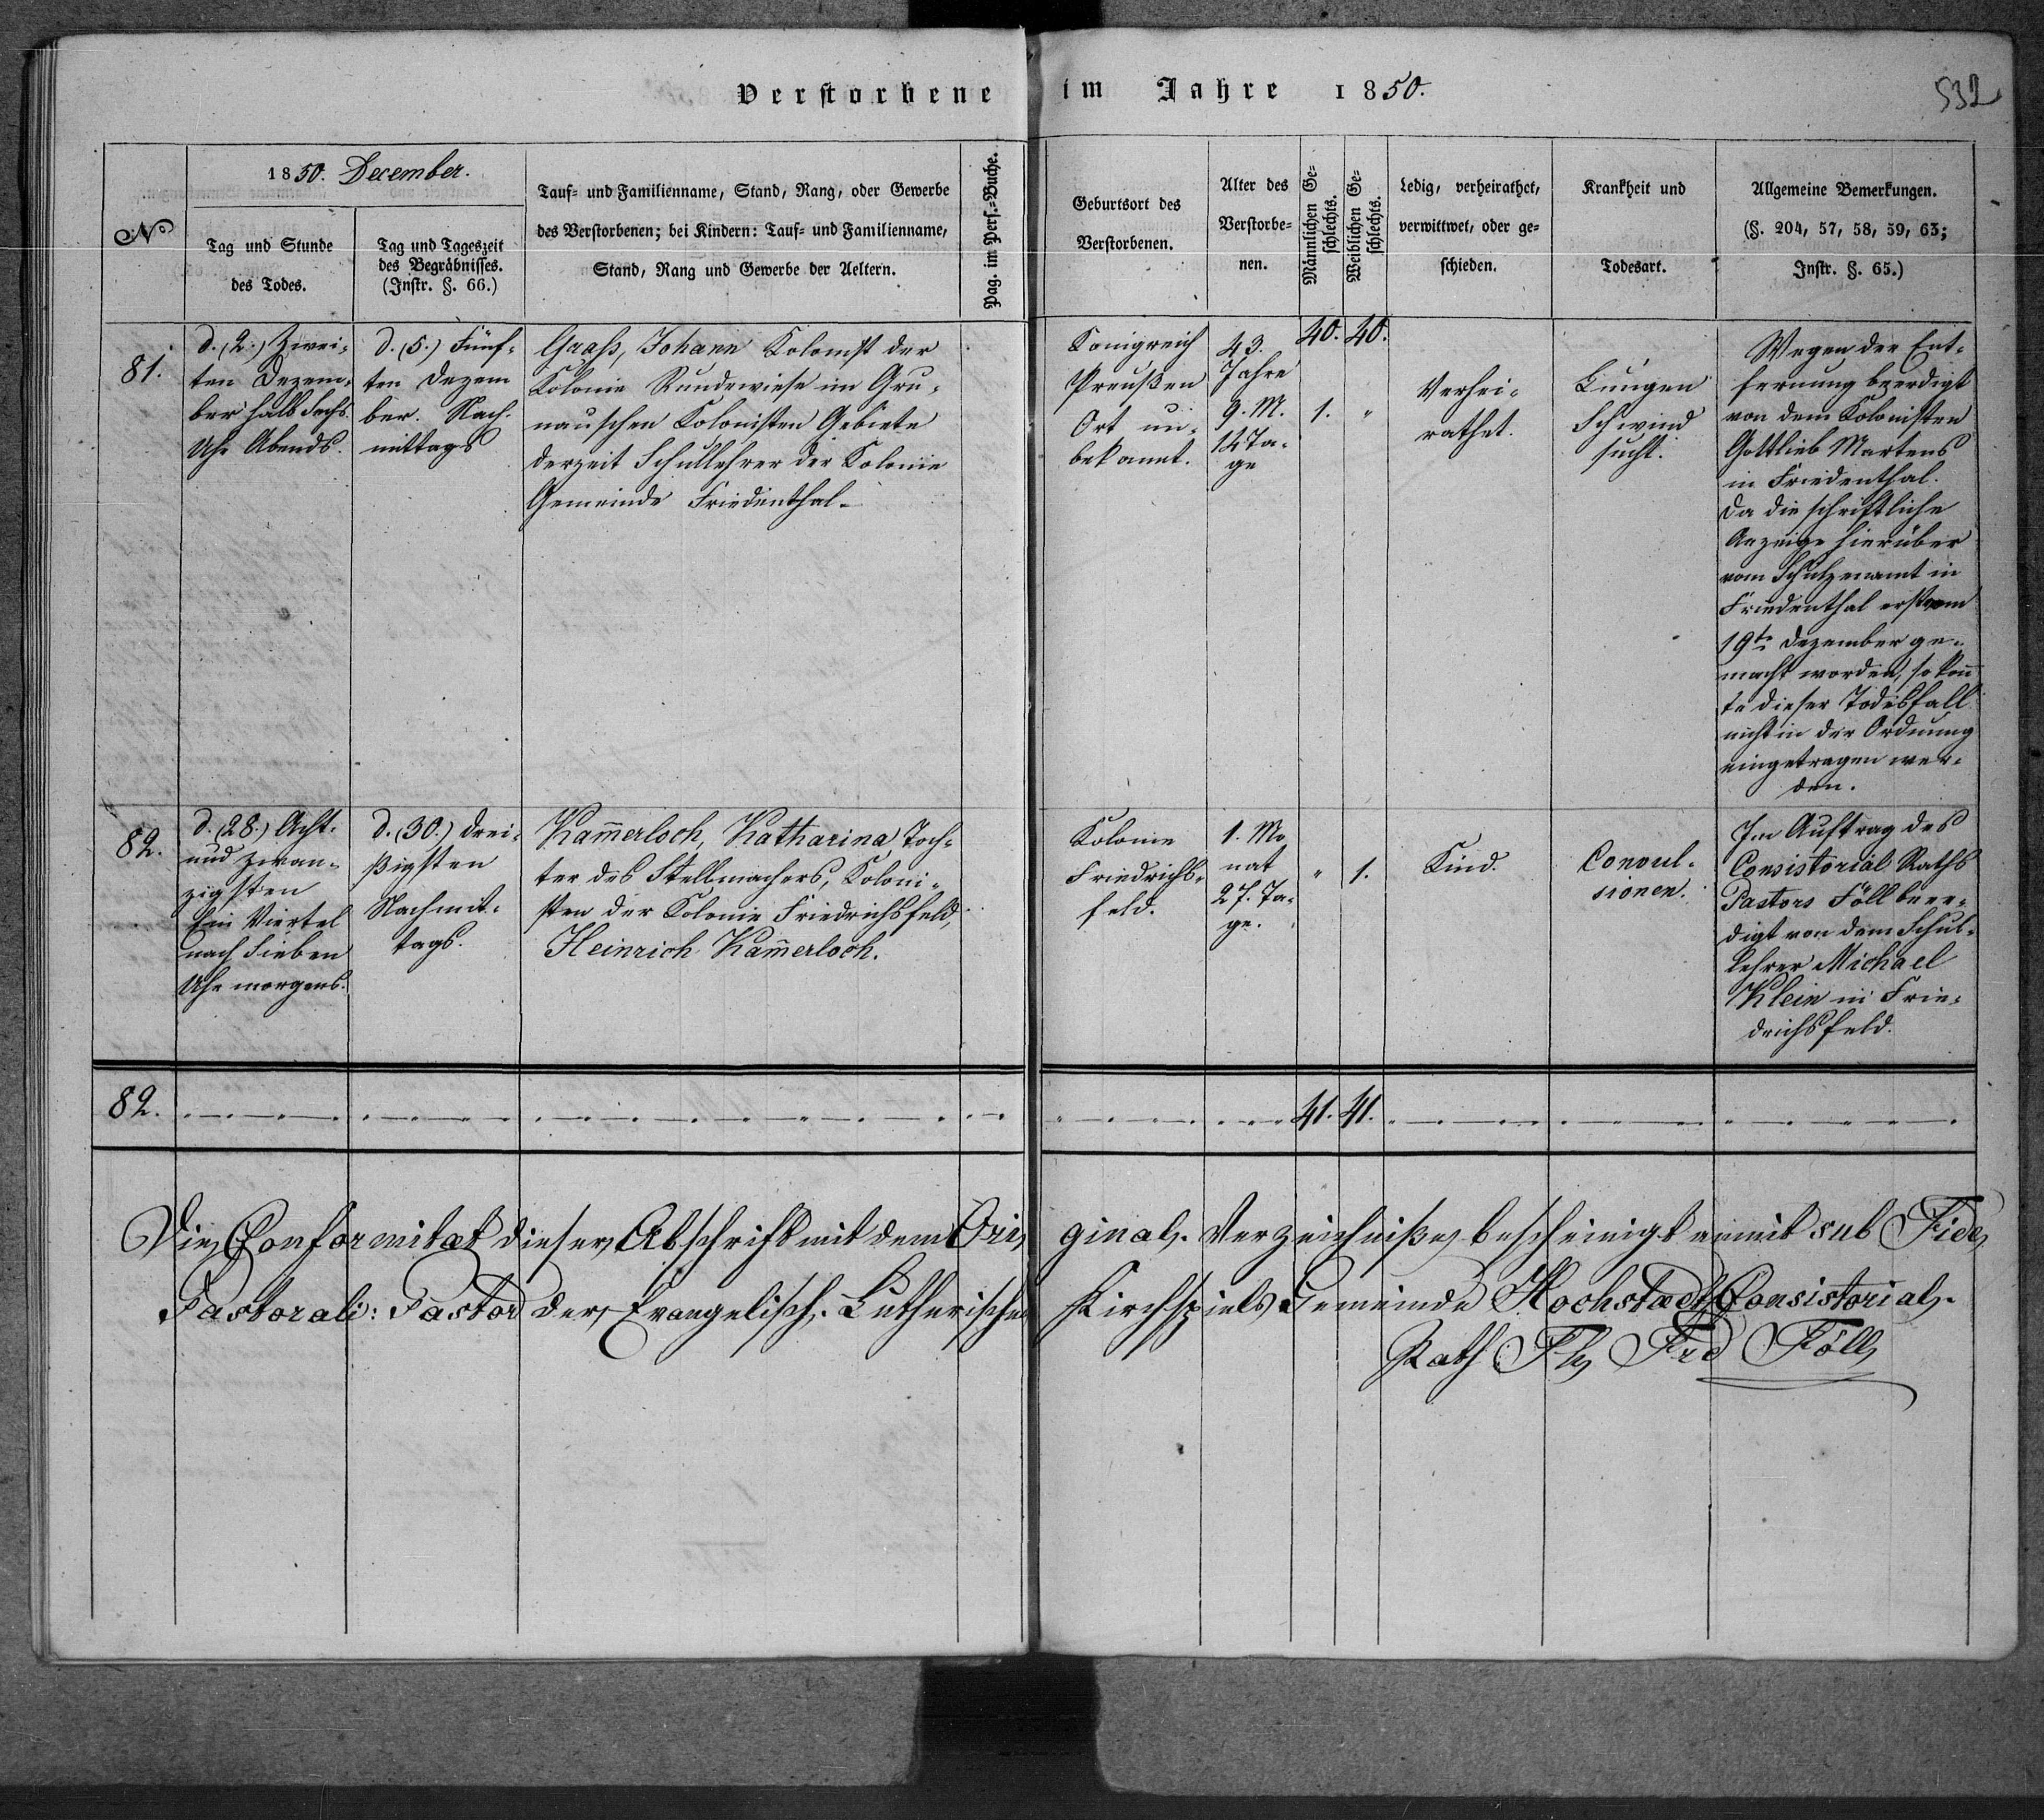 Verstorbene im Jahre 1850.
532
№
1850. December.
Tag und Stunde
des Todes.
Tag und Tageszeit
des Begräbnisses.
(Instr. §. 66.)
Tauf- und Familienname, Stand, Rang, oder Gewerbe
des Verstorbenen; bei Kindern: Tauf- und Familienname,
Stand, Rang und Gewerbe der Aeltern.
Pag. im Pers.-Buche.
Geburtsort des
Verstorbenen.
Alter des
Verstorbe-
nen.
Männlichen Ge-
schlechts.
Weiblichen Ge-
schlechts.
Ledig, verheirathet,
verwittwet, oder ge-
schieden.
Krankheit und
Todesart.
Allgemeine Bemerkungen.
(§. 204, 57, 58, 59, 63;
Instr. §. 65.)
81.
d. (2.) Zwei-
ten Dezem-
ber halb sechs
Uhr Abends.
d. (5.) Fünf-
ten Dezem
ber. Nach-
mittags
Graß, Johann Kolonist der
Kolonie Rundewiese im Gru-
nauschen Kolonisten Gebiete
derzeit Schullehrer der Kolonie
Gemeinde Friedenthal.
Konigreich
Preußen
Ort un-
bekannt.
43.
Jahre
9. M.
14 Ta-
ge
40. 40.
1. "
Verhei-
rathet.
Lungen
Schwind
sucht.
Wegen der Ent-
fernung beerdigt
von dem Kolonisten
Gottlieb Martens
in Friedenthal.
Da die schriftliche
Anzeige hierüber
vom Schulzenamt in
Friedenthal erst vom
19te Dezember ge-
macht worden, so konn
te dieser Todesfall
nicht in der Ordnung
eingetragen wer-
den.
82.
d. (28.) Acht-
und zwan-
zigsten
Ein Viertel
nach Sieben
Uhr morgens.
d. (30.) Drei-
ßigsten
Nachmit-
tags.
Kam̄erloch, Katharina Toch-
ter des Stellmachers, Koloni-
sten der Kolonie Friedrichsfeld,
Heinrich Kam̄erloch.
Kolonie
Friedrichs-
feld.
1. Mo
nat
27. Ta-
ge.
" 1.
Kind.
Convul-
sionen.
Im Auftrag des
Consistorial Raths
Pastors Föll beer-
digt von dem Schul-
lehrer Michael
Klein in Frie-
drichsfeld.
82. 41. 41.
Die Conformitaet dieser Abschrift mit dem Ori ginal-Verzeichniße bescheinigt sub Fide
Pastorali: Pastor der Evangelisch-Lutherischen Kirchspiels Gemeinde Hochstadt, Consistorial-
Rath: Frd Föll